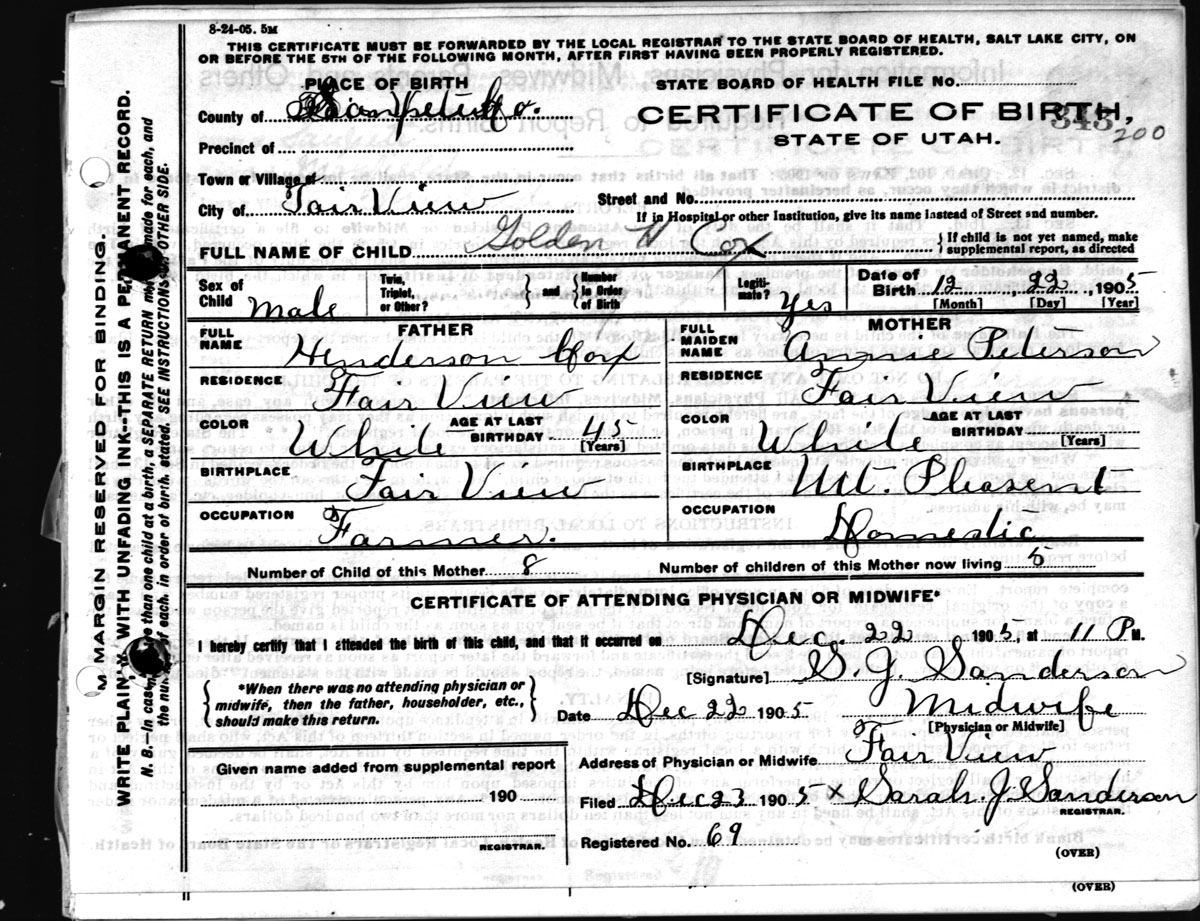 8-24-05. 5M
THIS CERTIFICATE MUST BE FORWARDED BY THE LOCAL REGISTRAR TO THE STATE BOARD OF HEALTH, SALT LAKE CITY, ON
OR BEFORE THE 5TH OF THE FOLLOWING MONTH, AFTER FIRST HAVING BEEN PROPERLY REGISTERED.
PLACE OF BIRTH
STATE BOARD OF HEALTH FILE NO.
County of Sanpete Co.
CERTIFICATE OF BIRTH,
343 200
STATE OF UTAH.
Precinct of
Town or Village of
City of Fair View
Street and No.
If in Hospital or other Institution, give its name instead of Street and number.
FULL NAME OF CHILD Golden H Cox
} If child is not yet named, make supplemental report, as directed
Sex of Child Male
Twin, Triplet, or Other? } and { Number in Order of Birth
Legiti-mate? Yes
Date of Birth 12, 22, 1905
[Month] [Day] [Year]
FATHER
FULL NAME Henderson Cox
RESIDENCE Fair View
COLOR White AGE AT LAST BIRTHDAY 45 [Years]
BIRTHPLACE Fair View
OCCUPATION Farmer.
MOTHER
FULL MAIDEN NAME Annie Peterson
RESIDENCE Fair View
COLOR White AGE AT LAST BIRTHDAY [Years]
BIRTHPLACE Mt. Pleasent
OCCUPATION Domestic
Number of Child of this Mother 8
Number of children of this Mother now living 5
CERTIFICATE OF ATTENDING PHYSICIAN OR MIDWIFE*
I hereby certify that I attended the birth of this child, and that it occurred on Dec. 22 1905, at 11 P M.
[Signature] S. J. Sanderson
{ *When there was no attending physician or midwife, then the father, householder, etc., should make this return. }
Date Dec 22 1905 Midwife
[Physician or Midwife]
Given name added from supplemental report
Address of Physician or Midwife Fair View
190
Filed Dec 23 1905 x Sarah. J. Sanderson
REGISTRAR.
REGISTRAR.
Registered No. 69
(OVER)
(OVER)
MARGIN RESERVED FOR BINDING.
WRITE PLAINLY WITH UNFADING INK--THIS IS A PERMANENT RECORD.
N. B.--In case of more than one child at a birth, a SEPARATE RETURN must be made for each, and
the number of each, in order of birth, stated. SEE INSTRUCTIONS ON OTHER SIDE.